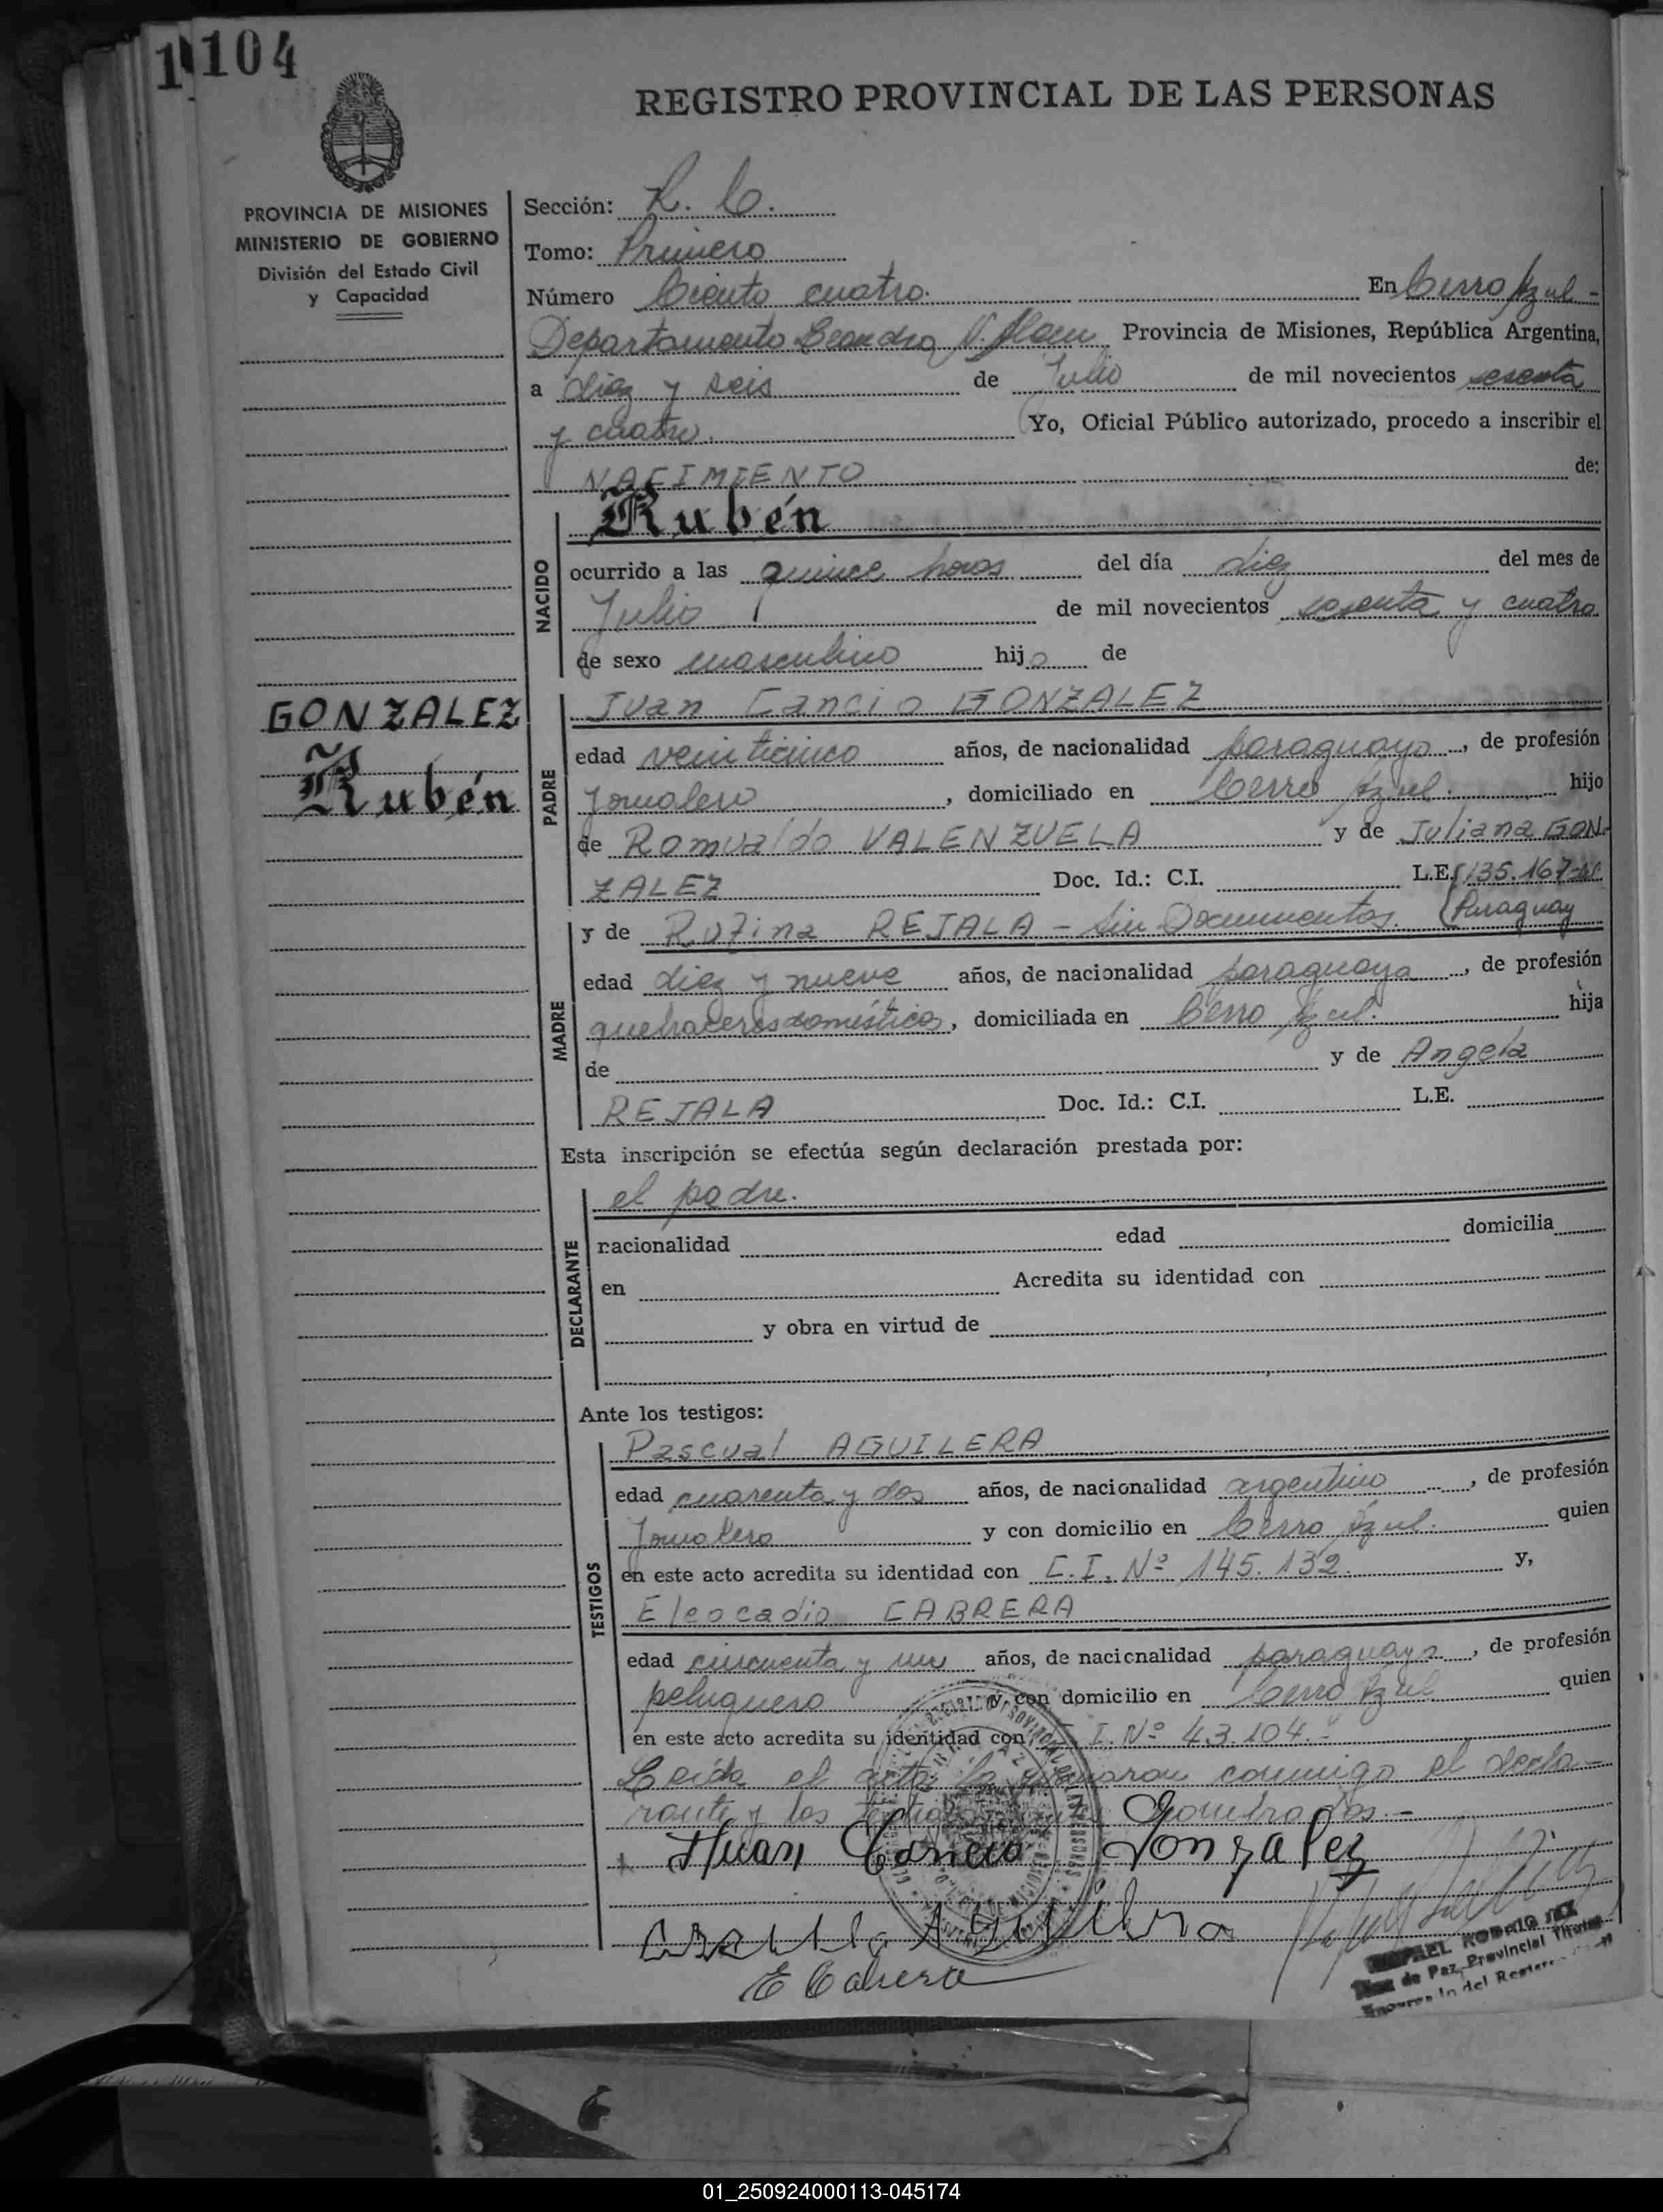 1104
REGISTRO PROVINCIAL DE LAS PERSONAS
PROVINCIA DE MISIONES
MINISTERIO DE GOBIERNO
División del Estado Civil
y Capacidad
Sección: R. C.
Tomo: Primero
Número Ciento cuatro. En Cerro Azul -
Departamento Leandro N. Alem Provincia de Misiones, República Argentina,
a diez y seis de Julio de mil novecientos sesenta
y cuatro. Yo, Oficial Público autorizado, procedo a inscribir el
NACIMIENTO de:
NACIDO
Rubén
ocurrido a las quince horas del día diez del mes de
Julio de mil novecientos sesenta y cuatro.
de sexo masculino hijo de
GONZALEZ
Rubén
PADRE
Juan Cancio GONZALEZ
edad veinticinco años, de nacionalidad paraguayo, de profesión
Jornalero, domiciliado en Cerro Azul. hijo
de Romualdo VALENZUELA y de Juliana GON-
ZALEZ Doc. Id.: C.I. L.E. 135.167
y de Rufina REJALA - Sin Documentos. (Paraguay
MADRE
edad diez y nueve años, de nacionalidad paraguaya, de profesión
quehaceres domésticos, domiciliada en Cerro Azul. hija
de y de Angela
REJALA Doc. Id.: C.I. L.E.
Esta inscripción se efectúa según declaración prestada por:
DECLARANTE
el padre.
nacionalidad edad domicilia
en Acredita su identidad con
y obra en virtud de
Ante los testigos:
TESTIGOS
Pascual AGUILERA
edad cuarenta y dos años, de nacionalidad argentino, de profesión
Jornalero y con domicilio en Cerro Azul. quien
en este acto acredita su identidad con C.I. Nº 145.132. y,
Eleocadio CABRERA
edad cincuenta y un años, de nacionalidad paraguaya, de profesión
peluquero y con domicilio en Cerro Azul quien
en este acto acredita su identidad con C.I. Nº 43.104.-
Leída el acta la firmaron conmigo el decla-
rante y los testigos nombrados.-
Juan Cancio Gonzalez
Aguilera
E Cabrera
Juez de Paz Provincial Titular
Encargado del Registro
01_250924000113-045174